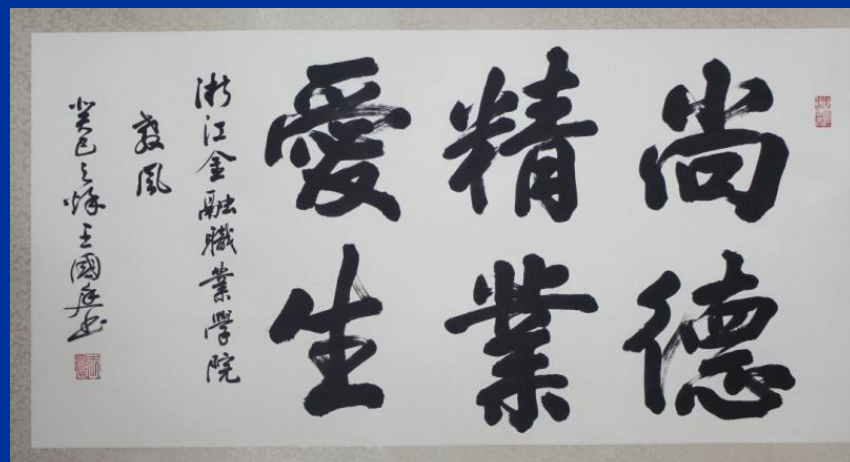 尚德
精業
愛生
浙江金融職業學院
教風
癸巳之秋王國庭书